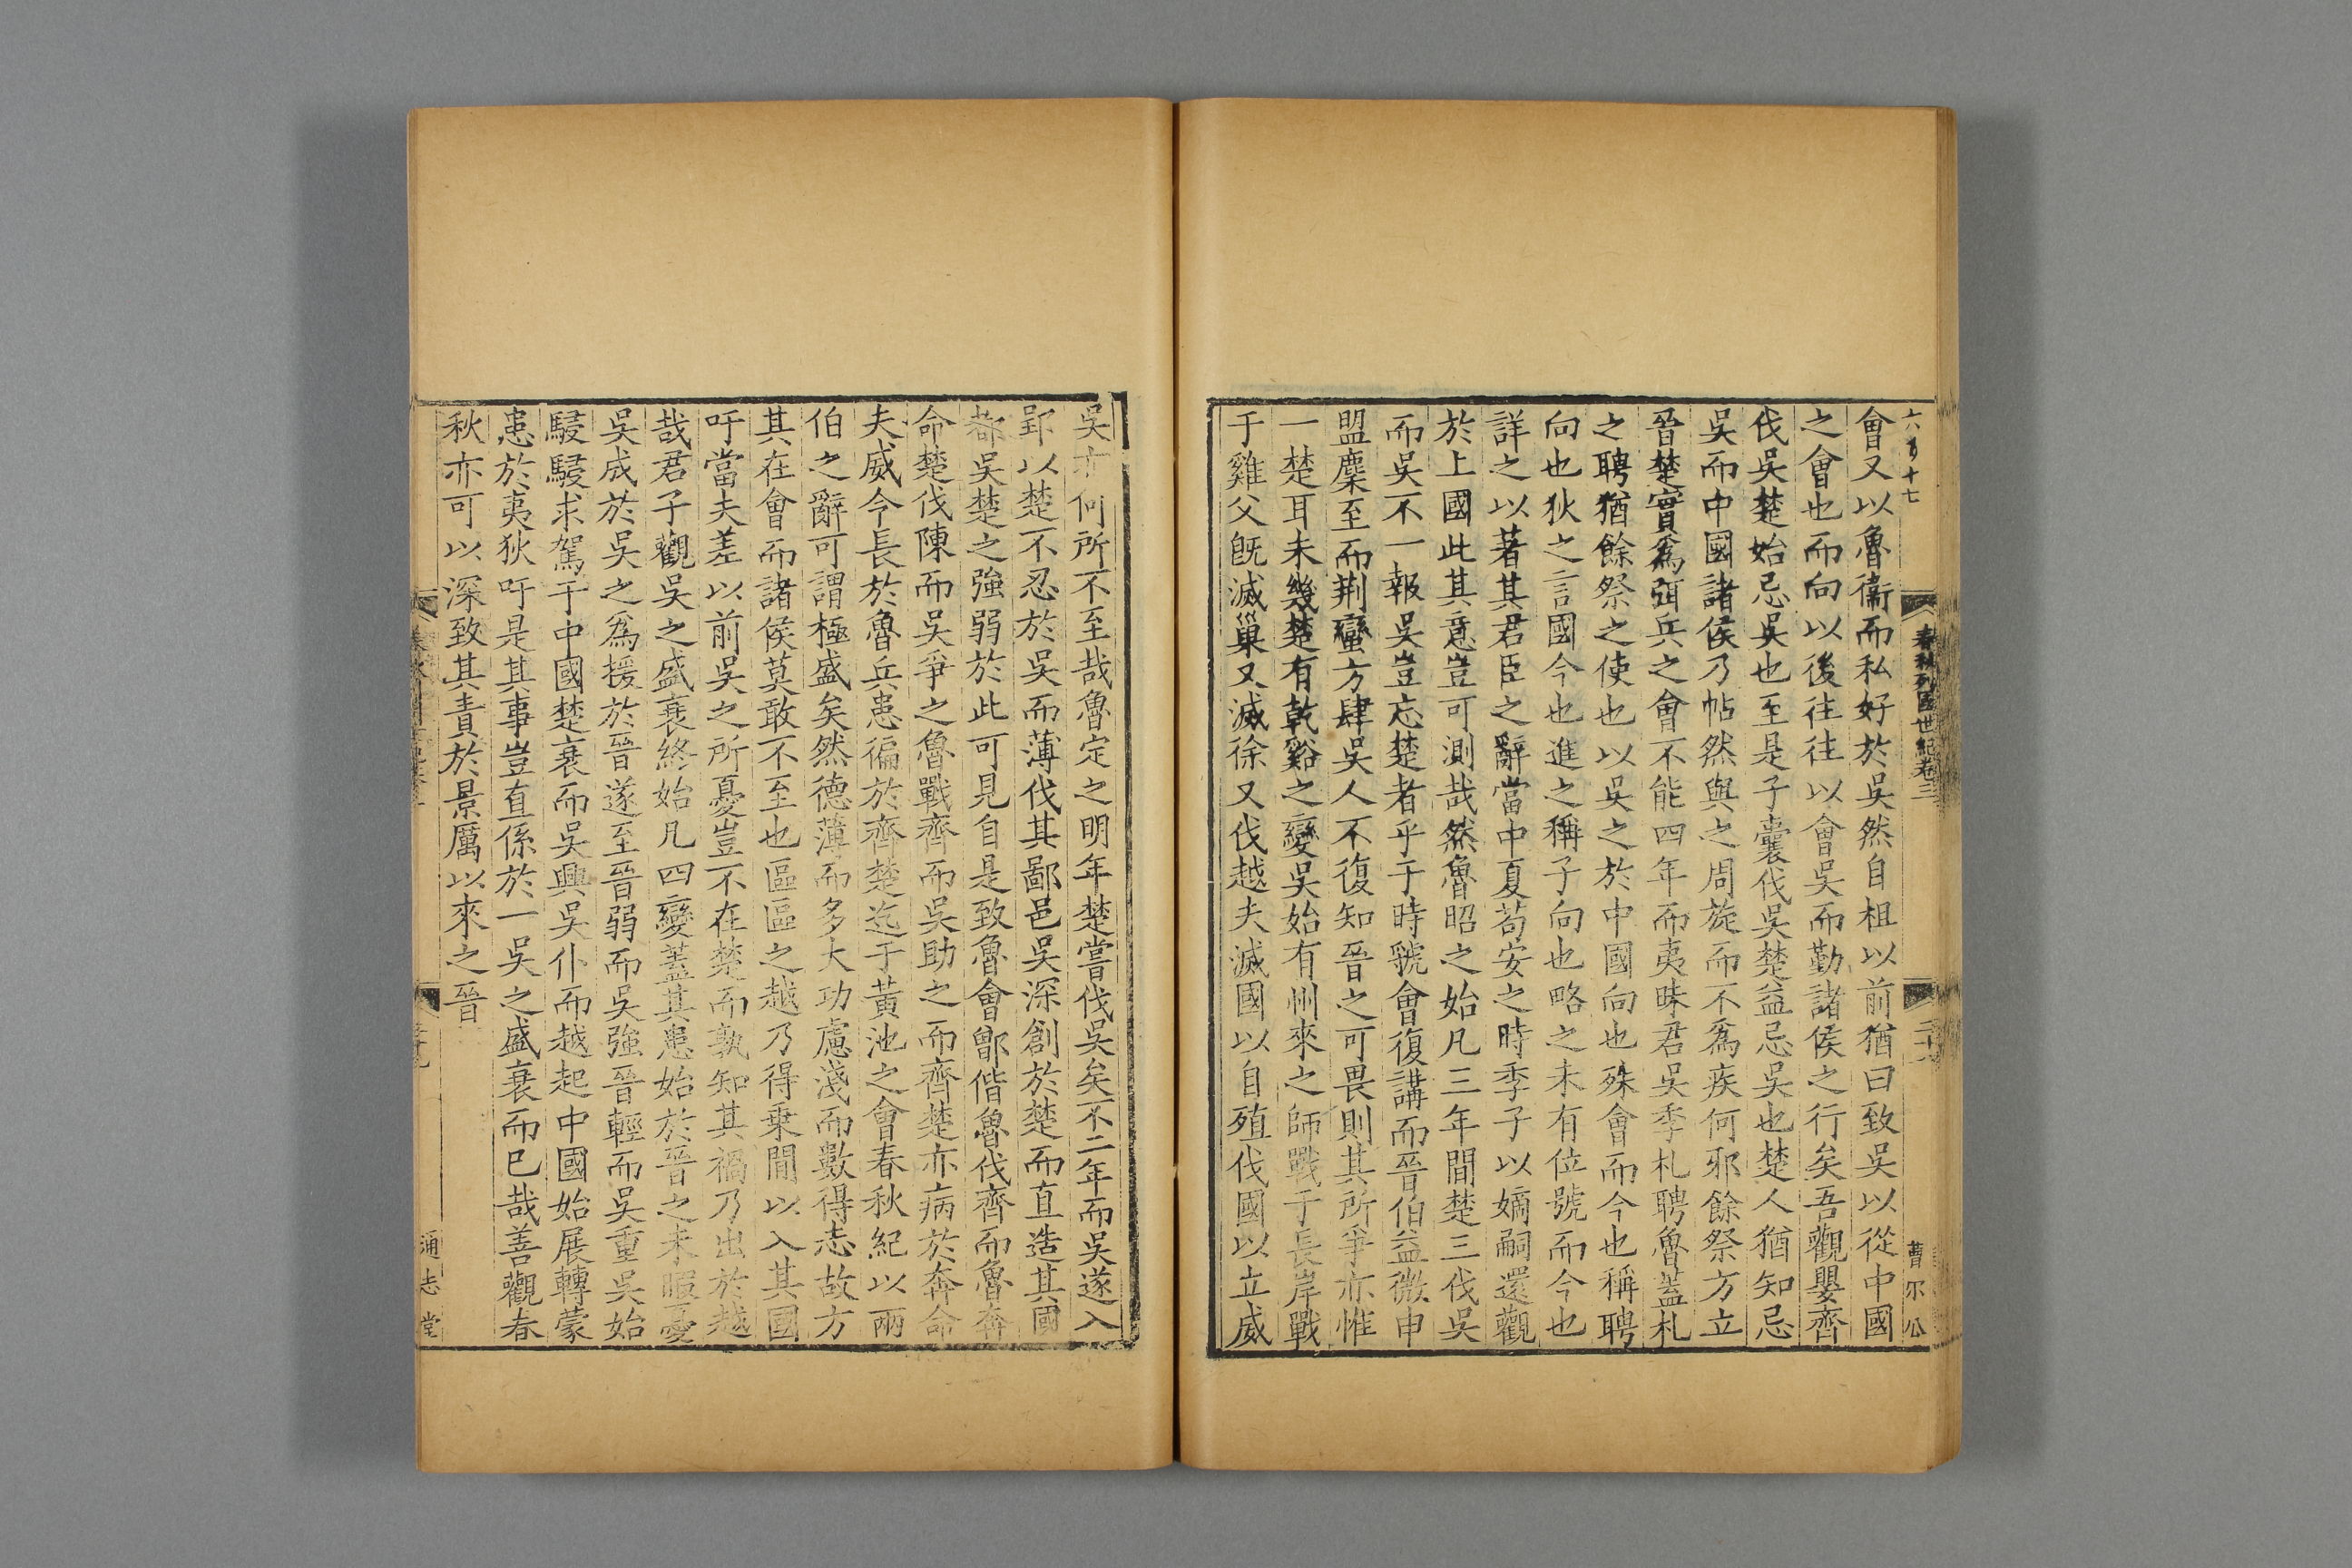 會又以魯衞而私好於吳然自柤以前猶曰致吳以從中國
之會也而向以後往往以會吳而勤諸侯之行矣吾觀嬰齊
伐吳楚始忌吳也至是子囊伐吳楚益忌吳也楚人猶知忌
吳而中國諸侯乃帖然與之周旋而不爲疾何邪餘祭方立
晉楚實爲弭兵之會不能四年而夷昧君吳季札聘魯蓋札
之聘猶餘祭之使也以吳之於中國向也殊會而今也稱聘
向也狄之言國今也進之稱子向也略之未有位號而今也
詳之以著其君臣之辭當中夏苟安之時季子以嫡嗣還觀
於上國此其意豈可測哉然魯昭之始凡三年間楚三伐吳
而吳不一報吳豈忘楚者乎于時虢會復講而晉伯益微申
盟麇至而荆蠻方肆吳人不復知晉之可畏則其所爭亦惟
一楚耳未幾楚有乾谿之變吳始有州來之師戰于長岸戰
于雞父旣滅巢又滅徐又伐越夫滅國以自殖伐國以立威
春秋列國世紀卷三
曹尔公
吳亦何所不至哉魯定之明年楚嘗伐吳矣不二年而吳遂入
郢以楚不忍於吳而薄伐其鄙邑吳深創於楚而直造其國
都吳楚之強弱於此可見自是致魯會鄫偕魯伐齊而魯奔
命楚伐陳而吳爭之魯戰齊而吳助之而齊楚亦病於奔命
夫威令長於魯兵患徧於齊楚迄于黃池之會春秋紀以兩
伯之辭可謂極盛矣然德薄而多大功慮淺而數得志故方
其在會而諸侯莫敢不至也區區之越乃得乗間以入其國
吁當夫差以前吳之所憂豈不在楚而孰知其禍乃出於越
哉君子觀吳之盛衰終始凡四變蓋其患始於晉之未暇憂
吳成於吳之爲援於晉遂至晉弱而吳強晉輕而吳重吳始
駸駸求駕于中國楚衰而吳興吳仆而越起中國始展轉蒙
患於夷狄吁是其事豈直係於一吳之盛衰而巳哉善觀春
秋亦可以深致其責於景厲以來之晉
通志堂